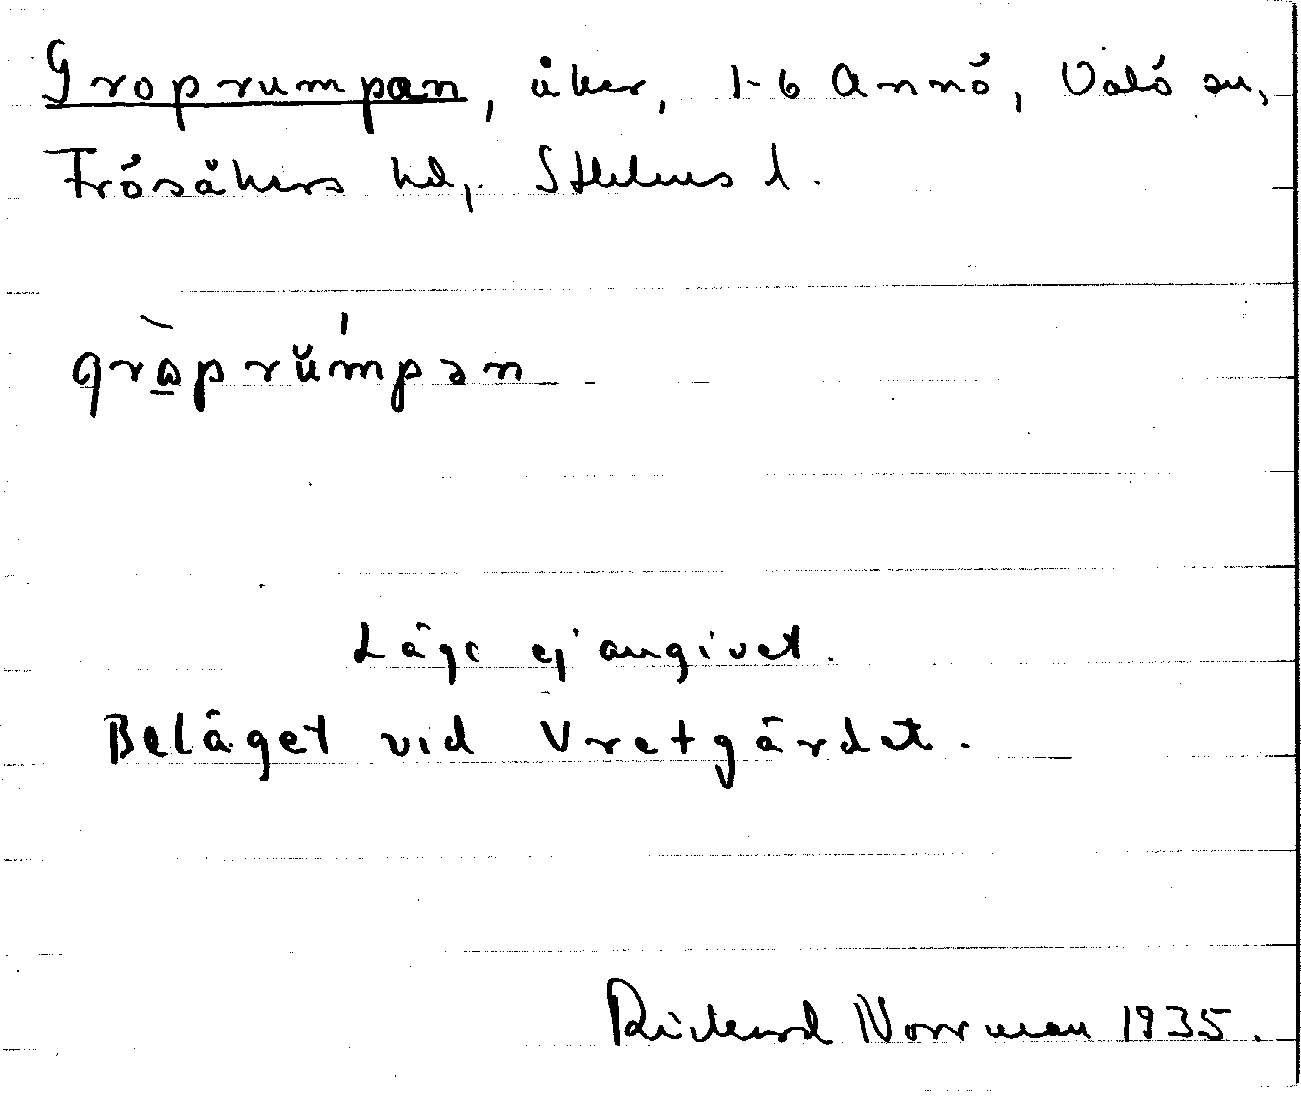 Groprumpan, åker, 1-6 Annö, Valö sn,
Frösåkers hd, Sthlms l.
gra̠̒prŭmpən
Läge ej angivet.
Beläget vid Vretgärdet.
Rickard Norrman 1935.